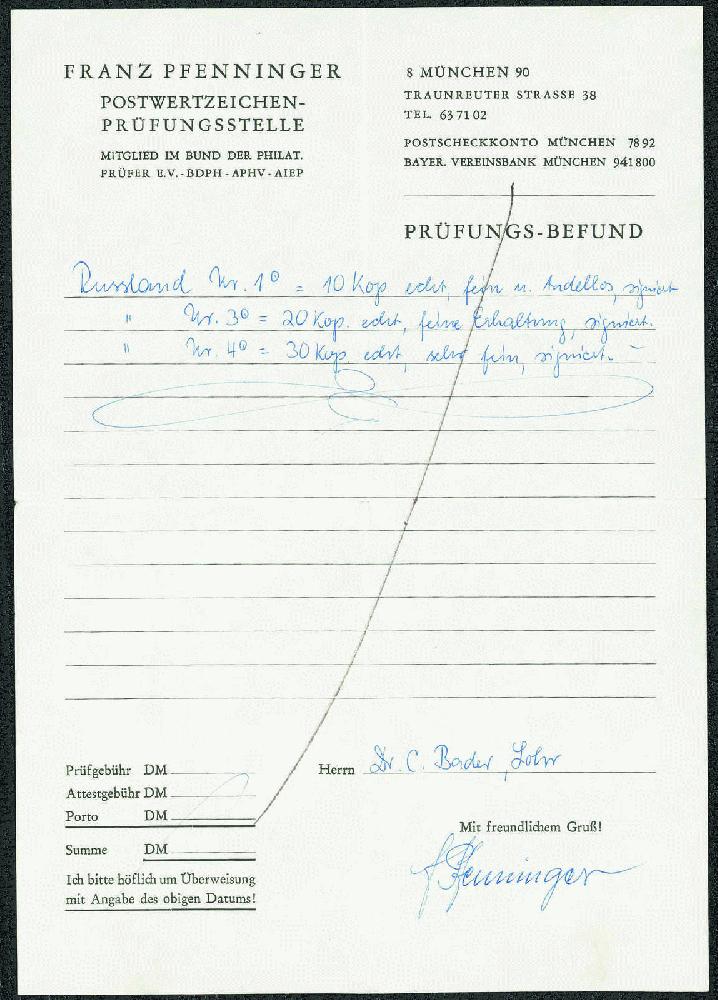 FRANZ PFENNINGER
POSTWERTZEICHEN-
PRÜFUNGSSTELLE
MITGLIED IM BUND DER PHILAT.
PRÜFER E.V. - BDPH - APHV - AIEP
8 MÜNCHEN 90
TRAUNREUTER STRASSE 38
TEL. 63 71 02
POSTSCHECKKONTO MÜNCHEN 78 92
BAYER. VEREINSBANK MÜNCHEN 941 800
PRÜFUNGS-BEFUND
Russland Nr. 1⊙ = 10 Kop echt, fein u. tadellos, signiert
" Nr. 3⊙ = 20 Kop. echt, feine Erhaltung, signiert.
" Nr. 4⊙ = 30 Kop echt, sehr fein, signiert. –
Prüfgebühr DM
Attestgebühr DM
Porto DM
Summe DM
Ich bitte höflich um Überweisung
mit Angabe des obigen Datums!
Herrn Dr. C. Bader, Lohr
Mit freundlichem Gruß!
F Pfenninger